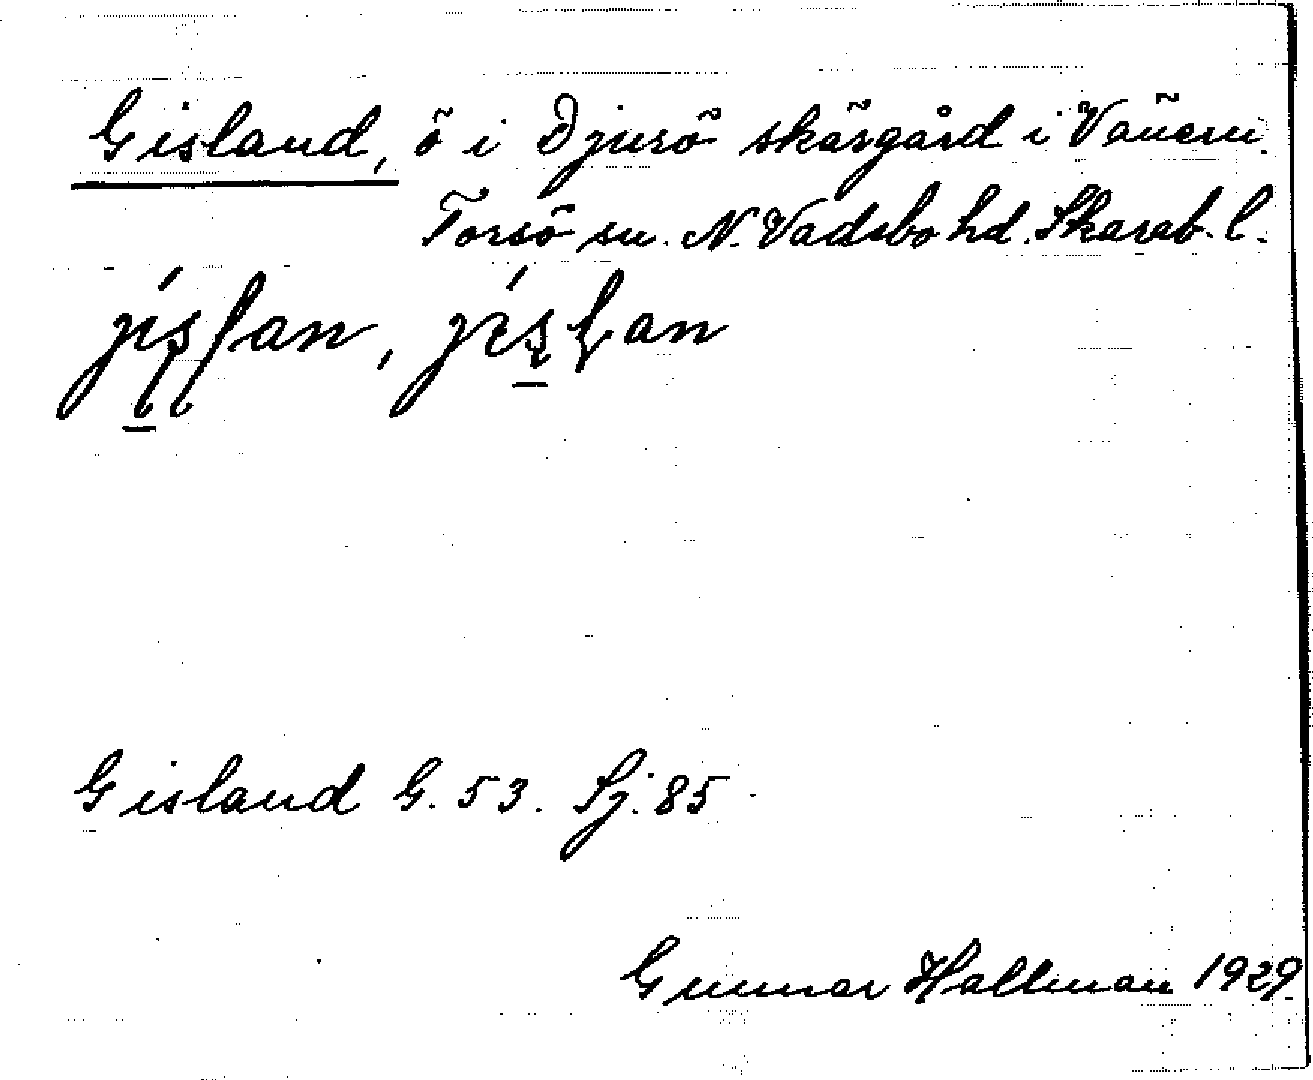 Gisland, ö i Djurö skärgård i Vänern.
Torsö sn. N. Vadsbo hd. Skarab. l.
Gisland G. 53. Sj. 85
Gunnar Hallman 1929